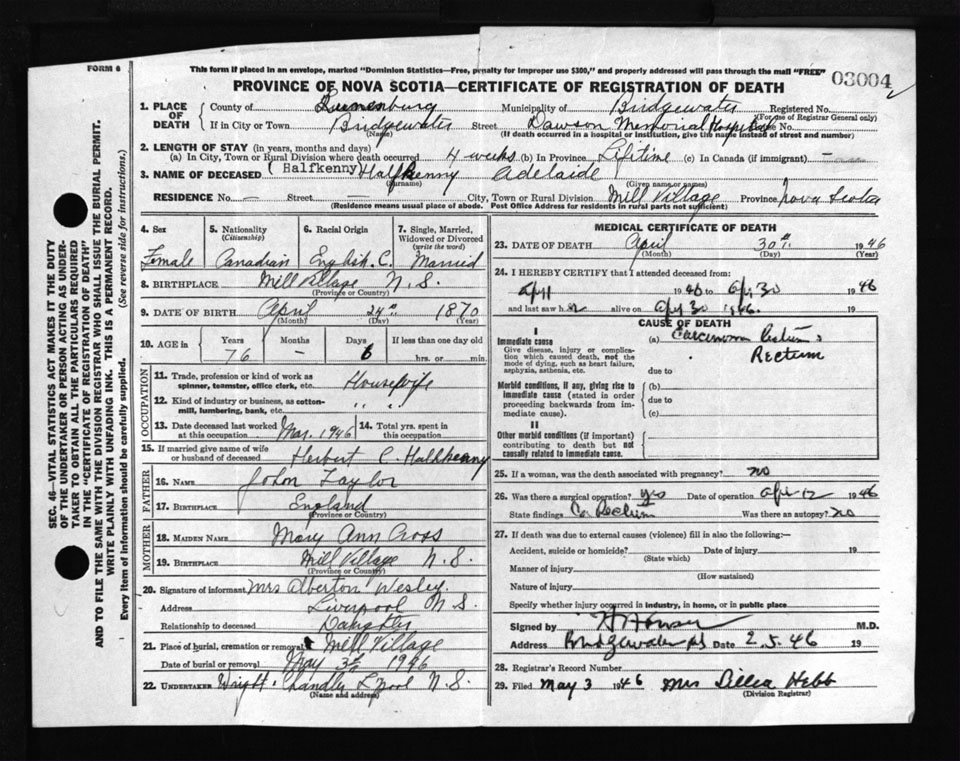 FORM 6
This form if placed in an envelope, marked "Dominion Statistics—Free, penalty for improper use $300," and properly addressed will pass through the mail "FREE"
03004
2
PROVINCE OF NOVA SCOTIA—CERTIFICATE OF REGISTRATION OF DEATH
1. PLACE OF DEATH
County of Lunenburg Municipality of Bridgewater Registered No.
(For use of Registrar General only)
If in City or Town Bridgewater Street Dawson Memorial Hospital No.
(Name) (If death occurred in a hospital or institution, give the name instead of street and number)
2. LENGTH OF STAY (in years, months and days)
(a) In City, Town or Rural Division where death occurred 4 weeks (b) In Province Lifetime (c) In Canada (if immigrant) —
3. NAME OF DECEASED (Halfkenny Halfkenny Adelaide
(Surname) (Given name or names)
RESIDENCE No. — Street City, Town or Rural Division Mill Village Province Nova Scotia
(Residence means usual place of abode. Post Office Address for residents in rural parts not sufficient)
4. Sex 5. Nationality (Citizenship) 6. Racial Origin 7. Single, Married, Widowed or Divorced (write the word)
Female Canadian English. C. Married
8. BIRTHPLACE Mill Village N.S.
(Province or Country)
9. DATE OF BIRTH April 24th 1870
(Month) (Day) (Year)
10. AGE in Years Months Days If less than one day
76 — 6 hrs. or min.
OCCUPATION
11. Trade, profession or kind of work as spinner, teamster, office clerk, etc. Housewife
12. Kind of industry or business, as cotton-mill, lumbering, bank, etc. " "
13. Date deceased last worked at this occupation Mar. 1946 14. Total yrs. spent in this occupation
15. If married give name of wife or husband of deceased Herbert C. Halfkenny
FATHER
16. NAME John Taylor
17. BIRTHPLACE England
(Province or Country)
MOTHER
18. MAIDEN NAME Mary Ann Cross
19. BIRTHPLACE Mill Village N.S.
(Province or Country)
20. Signature of informant Mrs Alberton Wesley.
Address Liverpool N.S.
Relationship to deceased Daughter
21. Place of burial, cremation or removal Mill Village
Date of burial or removal May 3rd 1946
22. UNDERTAKER Wright Chandler L'pool N.S.
(Name and address)
MEDICAL CERTIFICATE OF DEATH
23. DATE OF DEATH April 30th 1946
(Month) (Day) (Year)
24. I HEREBY CERTIFY that I attended deceased from:
Apl 1946 to Apr 30 1946
and last saw her alive on Apr 30 1946.
CAUSE OF DEATH
I
Immediate cause
Give disease, injury or complication which caused death, not the mode of dying, such as heart failure, asphyxia, asthenia, etc.
(a) Carcinoma
Rectum
due to
Morbid conditions, if any, giving rise to immediate cause (stated in order proceeding backwards from immediate cause).
(b)
due to
(c)
II
Other morbid conditions (if important) contributing to death but not causally related to immediate cause.
25. If a woman, was the death associated with pregnancy? no
26. Was there a surgical operation? yes Date of operation Apr 12 1946
State findings Ca Rectum Was there an autopsy? no
27. If death was due to external causes (violence) fill in also the following:—
Accident, suicide or homicide? Date of injury 19
(State which)
Manner of injury
(How sustained)
Nature of injury
Specify whether injury occurred in industry, in home, or in public place
Signed by M.D.
Address Bridgewater NS Date 2.5.46 19
28. Registrar's Record Number
29. Filed May 3 1946 Mrs Hebb
(Division Registrar)
SEC. 46—VITAL STATISTICS ACT MAKES IT THE DUTY
OF THE UNDERTAKER OR PERSON ACTING AS UNDER-
TAKER TO OBTAIN ALL THE PARTICULARS REQUIRED
IN THE "CERTIFICATE OF REGISTRATION OF DEATH"
AND TO FILE THE SAME WITH THE DIVISION REGISTRAR WHO SHALL ISSUE THE BURIAL PERMIT.
WRITE PLAINLY WITH UNFADING INK. THIS IS A PERMANENT RECORD.
Every item of information should be carefully supplied. (See reverse side for instructions.)